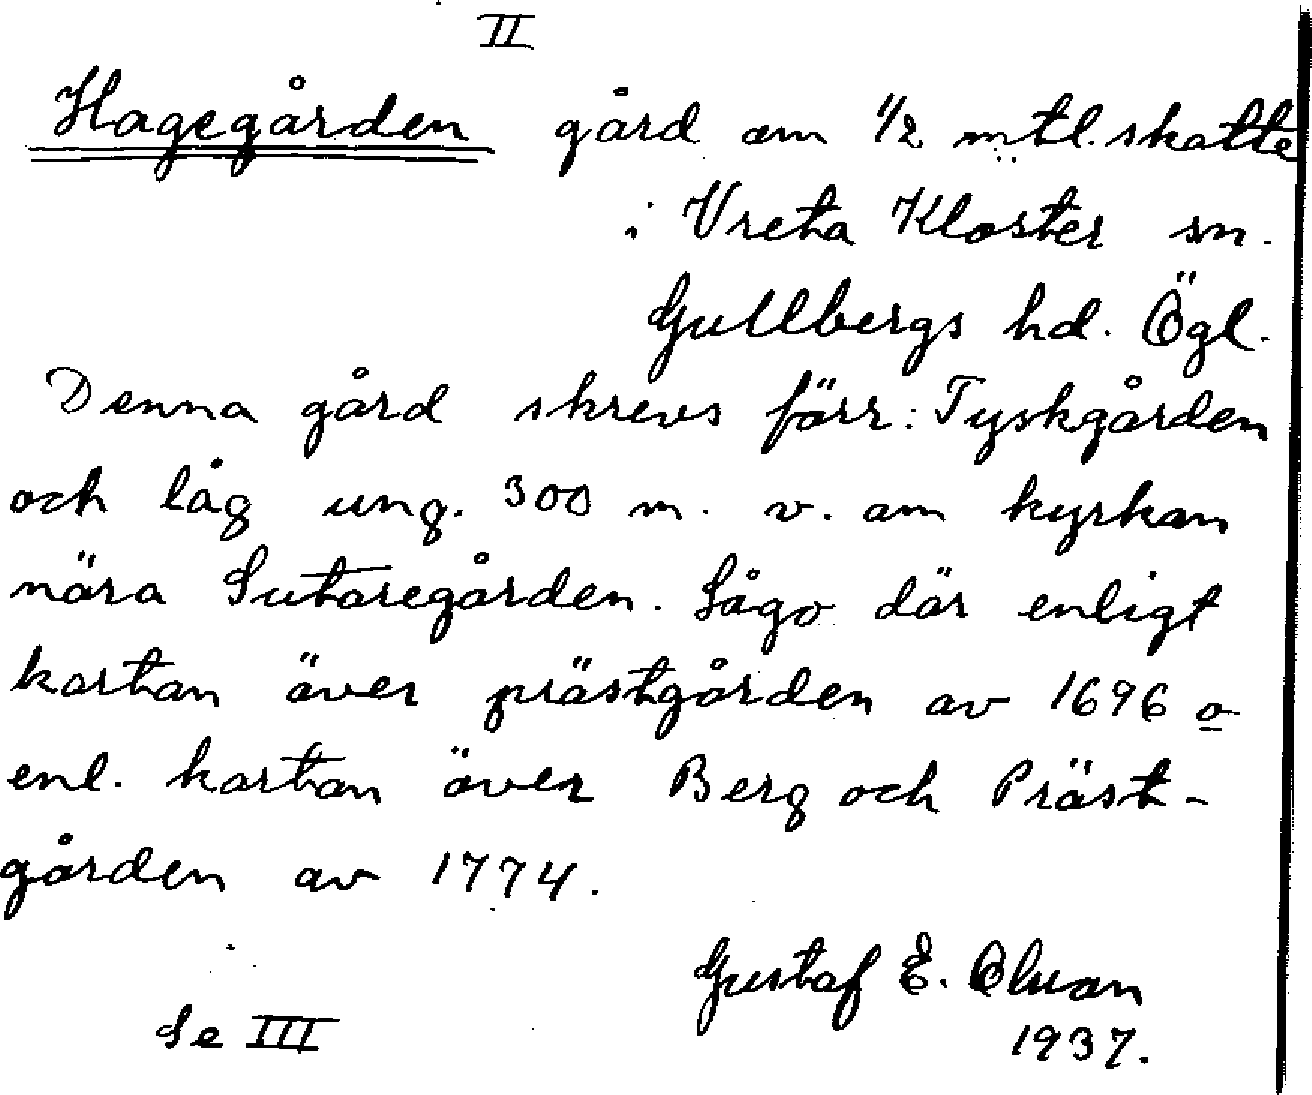 II
Hagegården gård om 1/2 mtl. skatte
i Vreta Kloster sn.
Gullbergs hd. Ögl.
Denna gård skrevs förr: Tyskgården
och låg ung. 300 m. v. om kyrkan
nära Sutaregården. Lågo där enligt
kartan över prästgården av 1696 o
enl. kartan över Berg och Präst-
gården av 1774.
Gustaf E.
1937.
Se III